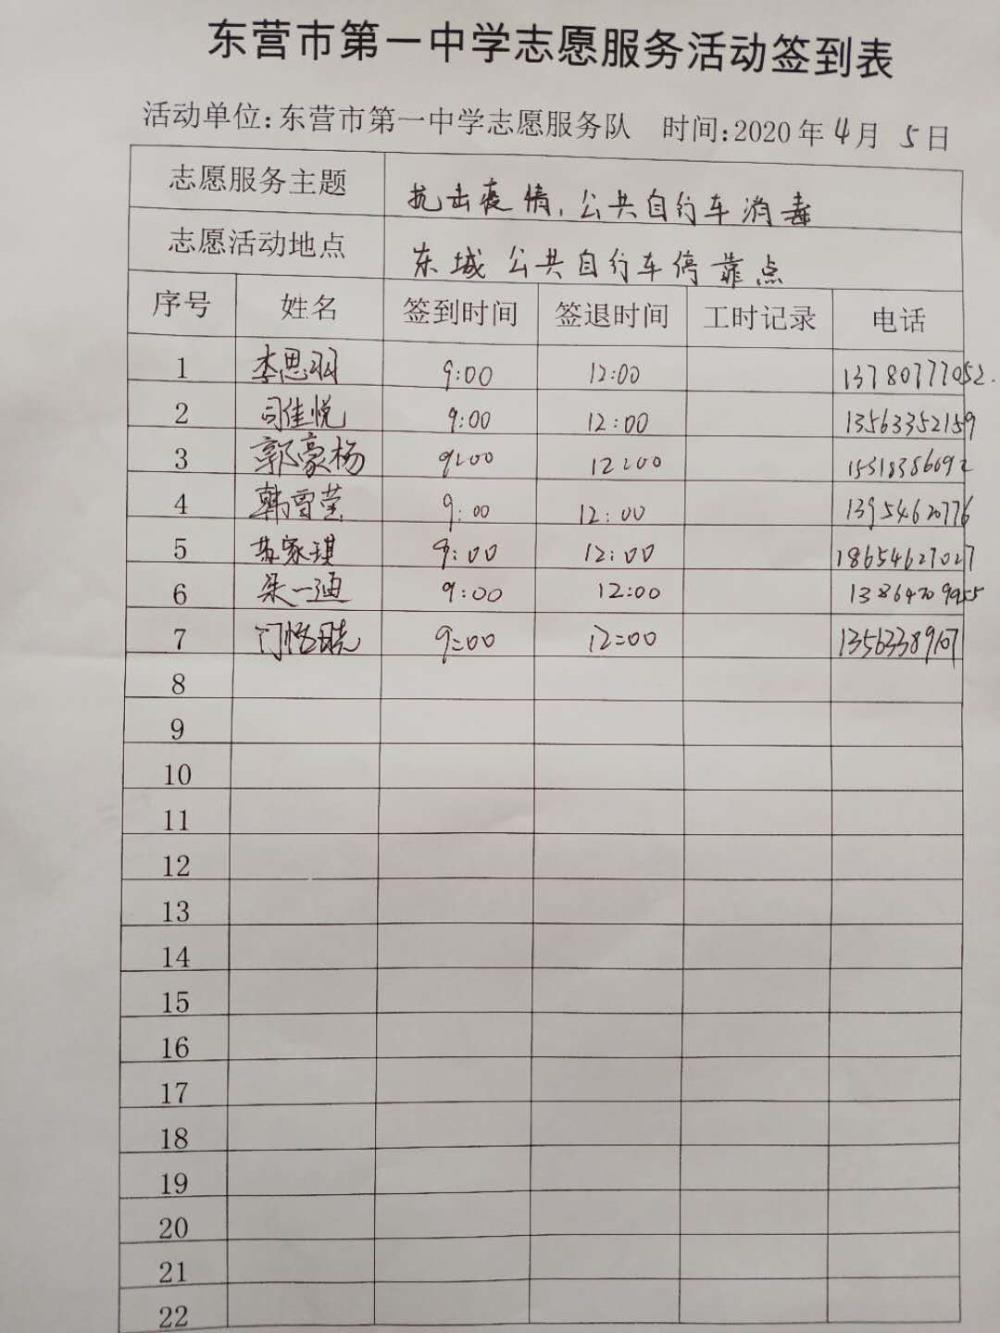 东营市第一中学志愿服务活动签到表
活动单位:东营市第一中学志愿服务队 时间:2020年4月5日
志愿服务主题 抗击疫情,公共自行车消毒
志愿活动地点 东城公共自行车停靠点
序号 姓名 签到时间 签退时间 工时记录 电话
1 李思羽 9:00 12:00 13780777052.
2 司佳悦 9:00 12:00 13563352159
3 郭豪杨 9:00 12:00
4 韩雪莹 9:00 12:00 13954620776
5 苏家琪 9:00 12:00 18654627027
6 朱一迪 9:00 12:00
7 9:00 12:00 13563389107
8
9
10
11
12
13
14
15
16
17
18
19
20
21
22